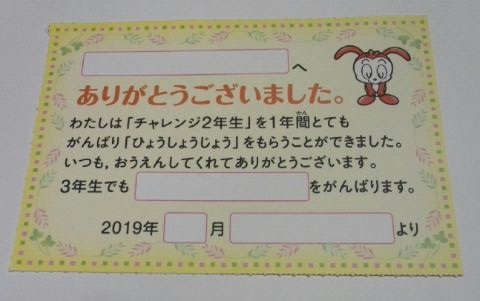 へ
ありがとうございました。
わたしは「チャレンジ2年生」を1年間とても
かん
がんばり「ひょうしょうじょう」をもらうことができました。
いつも、おうえんしてくれてありがとうございます。
3年生でも をがんばります。
2019年 月 より